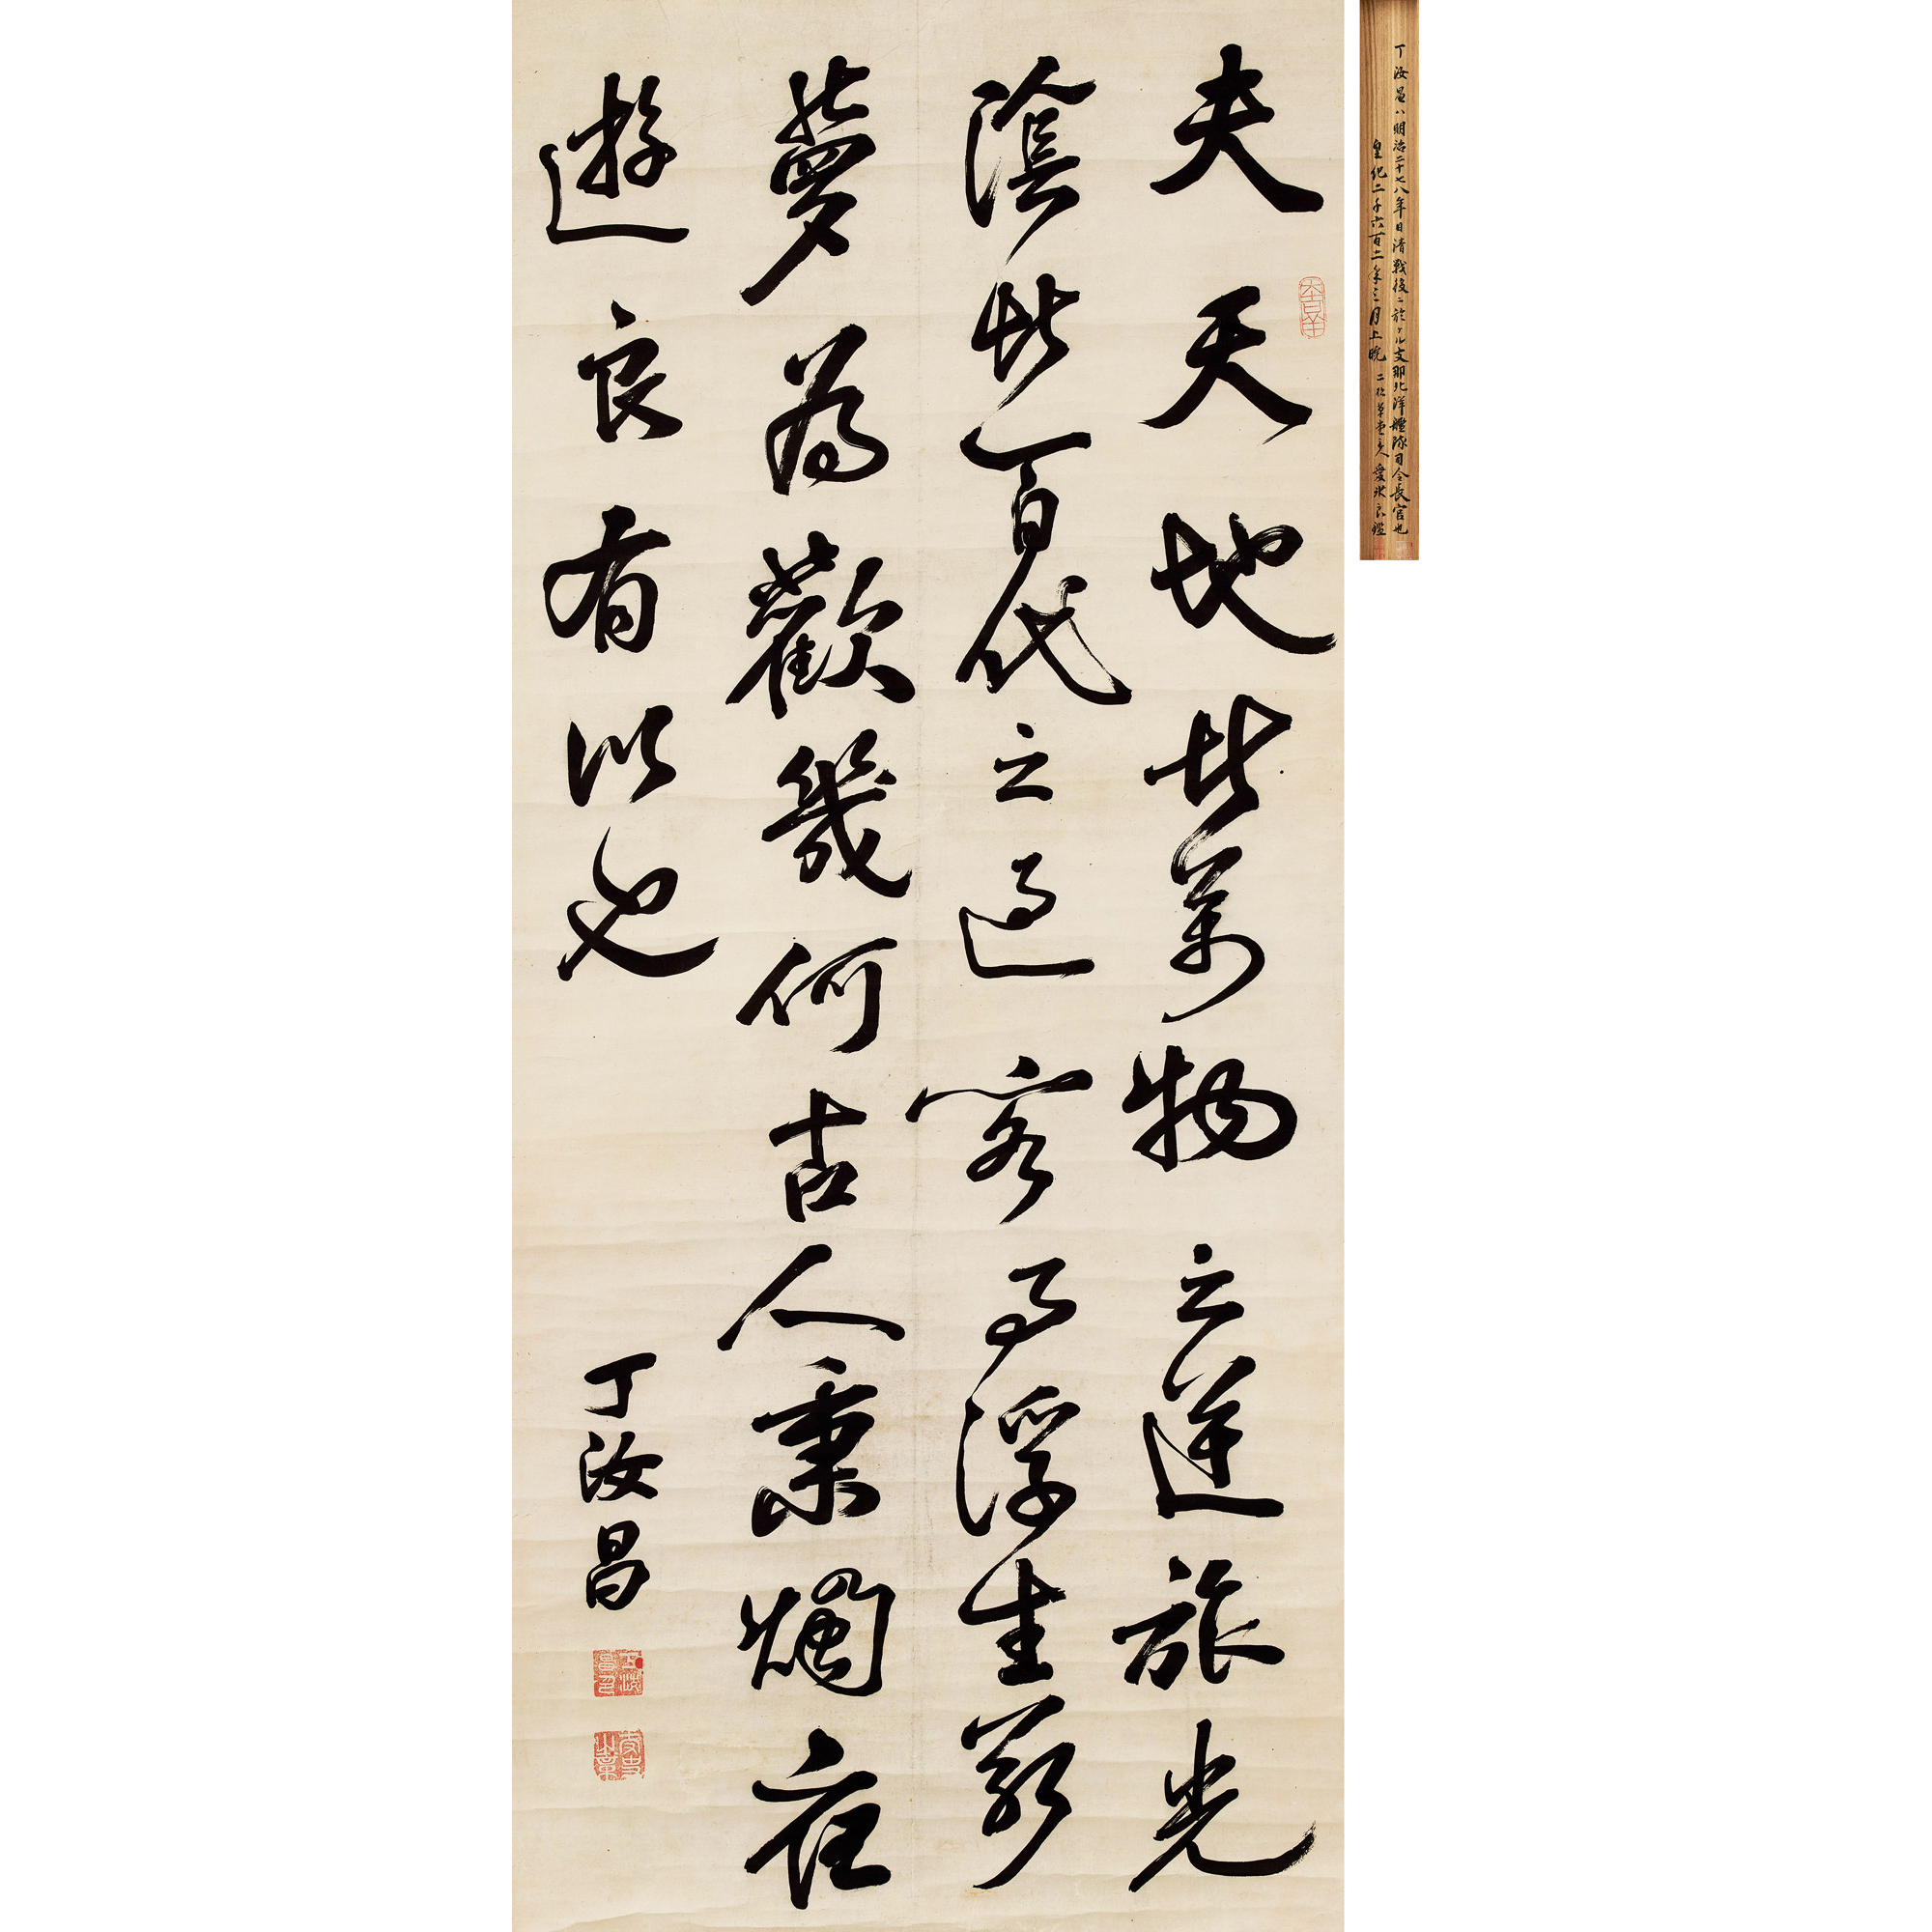 丁汝昌ハ明治二十七八年日清戰後ニ於ケル支那北洋艦隊司令長官也
皇紀二千六百二年三月上晩 二松草堂主人
夫天地者萬物之逆旅光
陰者百代之過客而浮生若
夢為歡幾何古人秉燭夜
遊良有以也
丁汝昌